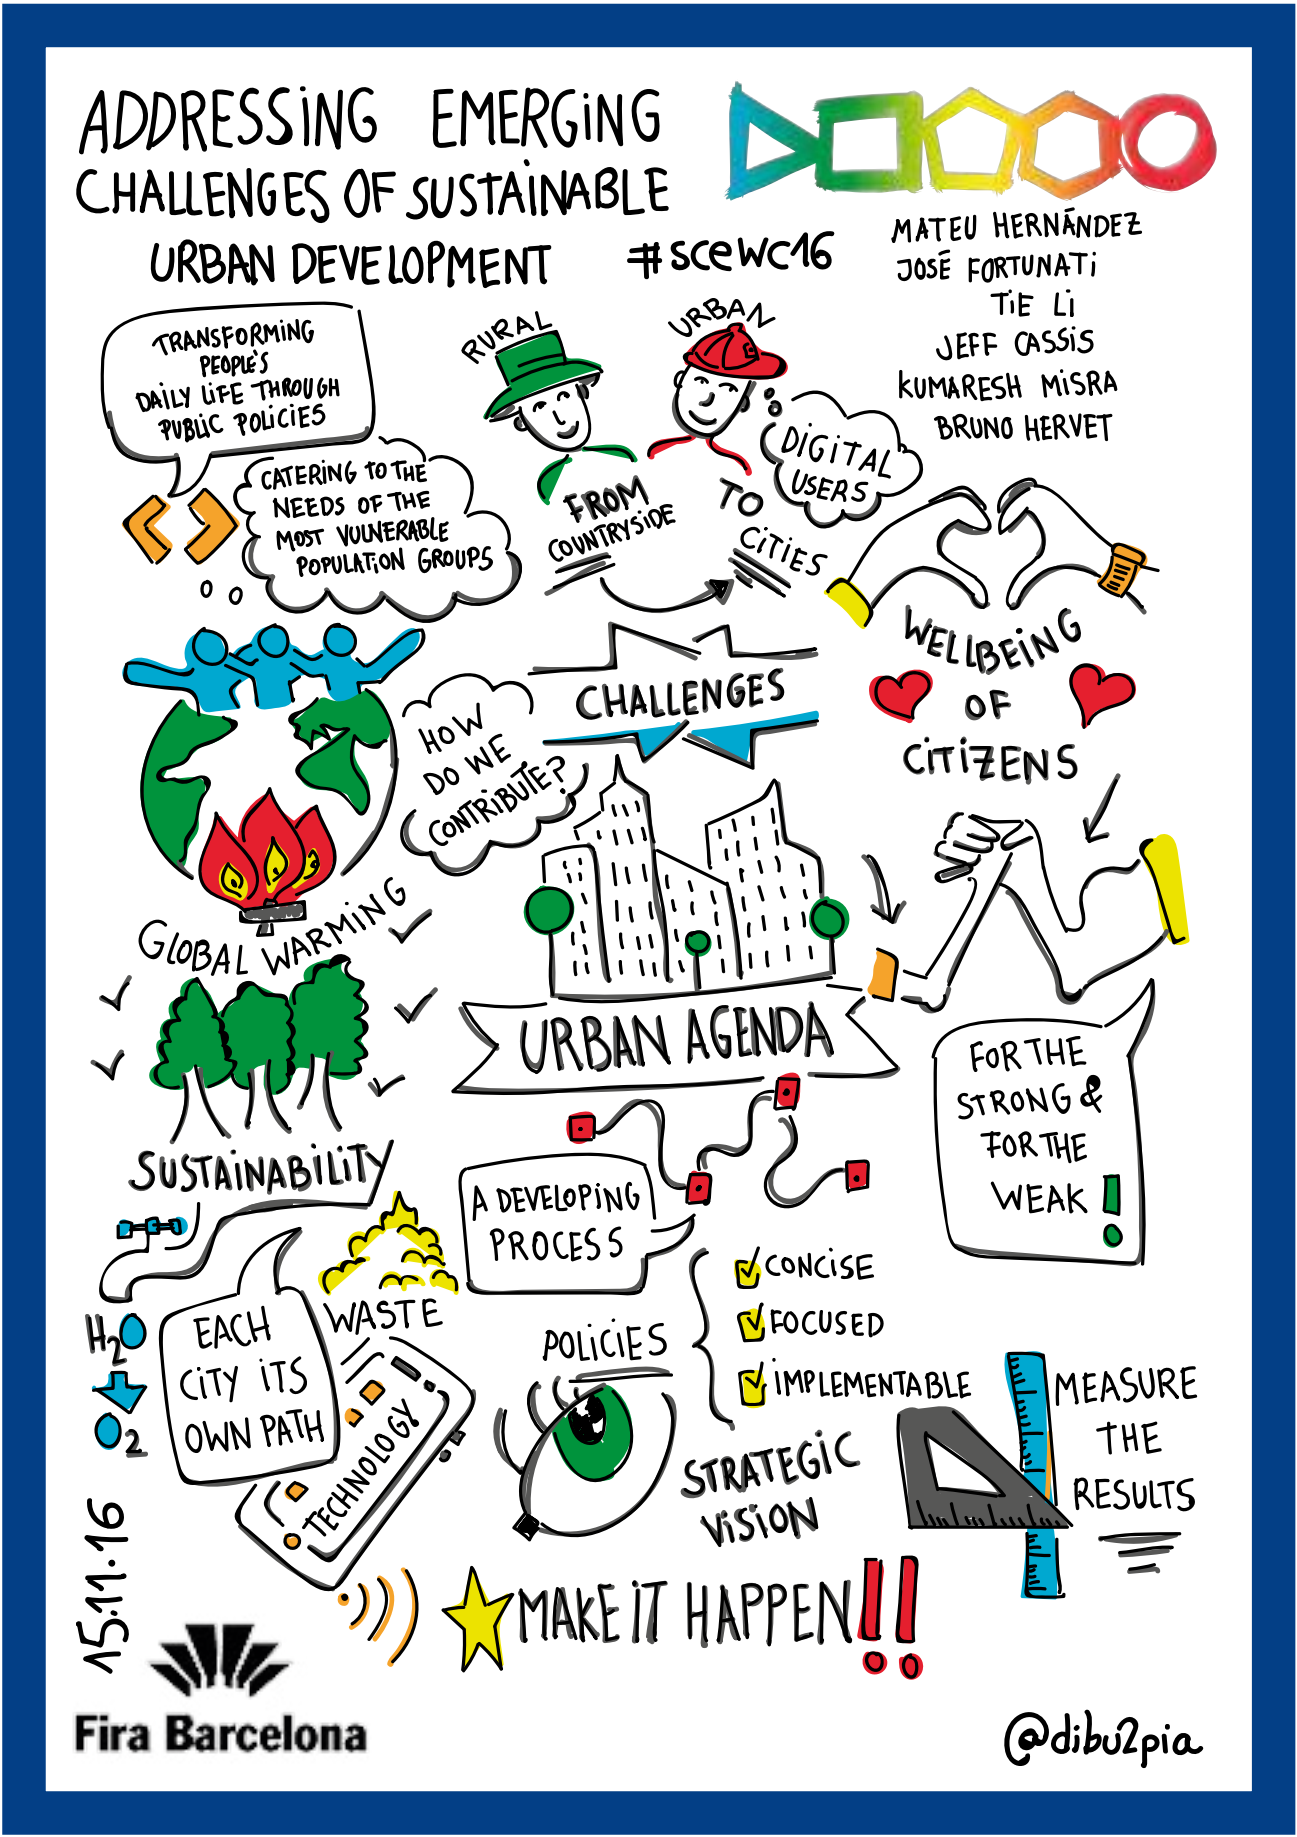 ADDRESSING EMERGING
CHALLENGES OF SUSTAINABLE
URBAN DEVELOPMENT #scewc16
MATEU HERNÁNDEZ
JOSÉ FORTUNATI
TIE LI
JEFF CASSIS
KUMARESH MISRA
BRUNO HERVET
TRANSFORMING
PEOPLE'S
DAILY LIFE THROUGH
PUBLIC POLICIES
CATERING TO THE
NEEDS OF THE
MOST VULNERABLE
POPULATION GROUPS
RURAL
URBAN
DIGITAL
USERS
FROM
COUNTRYSIDE
TO
CITIES
WELLBEING
OF
CITIZENS
CHALLENGES
HOW
DO WE
CONTRIBUTE?
GLOBAL WARMING
URBAN AGENDA
FOR THE
STRONG &
FOR THE
WEAK!
SUSTAINABILITY
A DEVELOPING
PROCESS
WASTE
H2O
O2
EACH
CITY ITS
OWN PATH
TECHNOLOGY
POLICIES
CONCISE
FOCUSED
IMPLEMENTABLE
STRATEGIC
VISION
MEASURE
THE
RESULTS
MAKE IT HAPPEN!!
15.11.16
Fira Barcelona
@dibu2pia